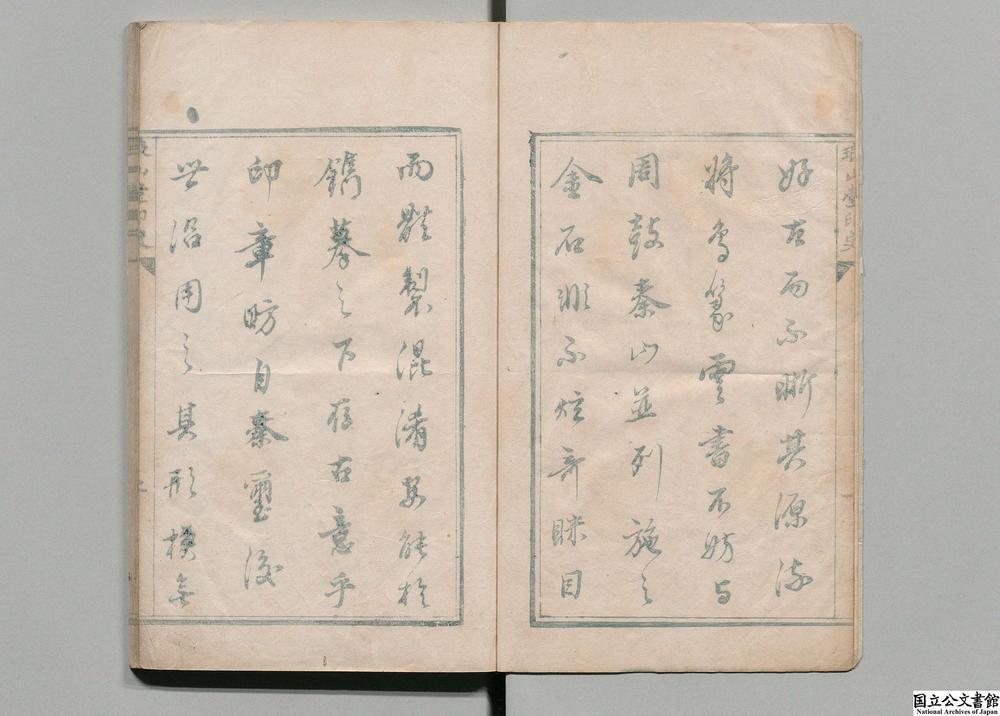 好古而不晰其源流
將鳥篆雲書不妨与
周鼓秦山並列施之
金石非不炫奇眯目
而體製混淆安能於
鐫摹之下存古意乎
印章昉自秦璽後
世沿用之其形模無
国立公文書館
National Archives of Japan